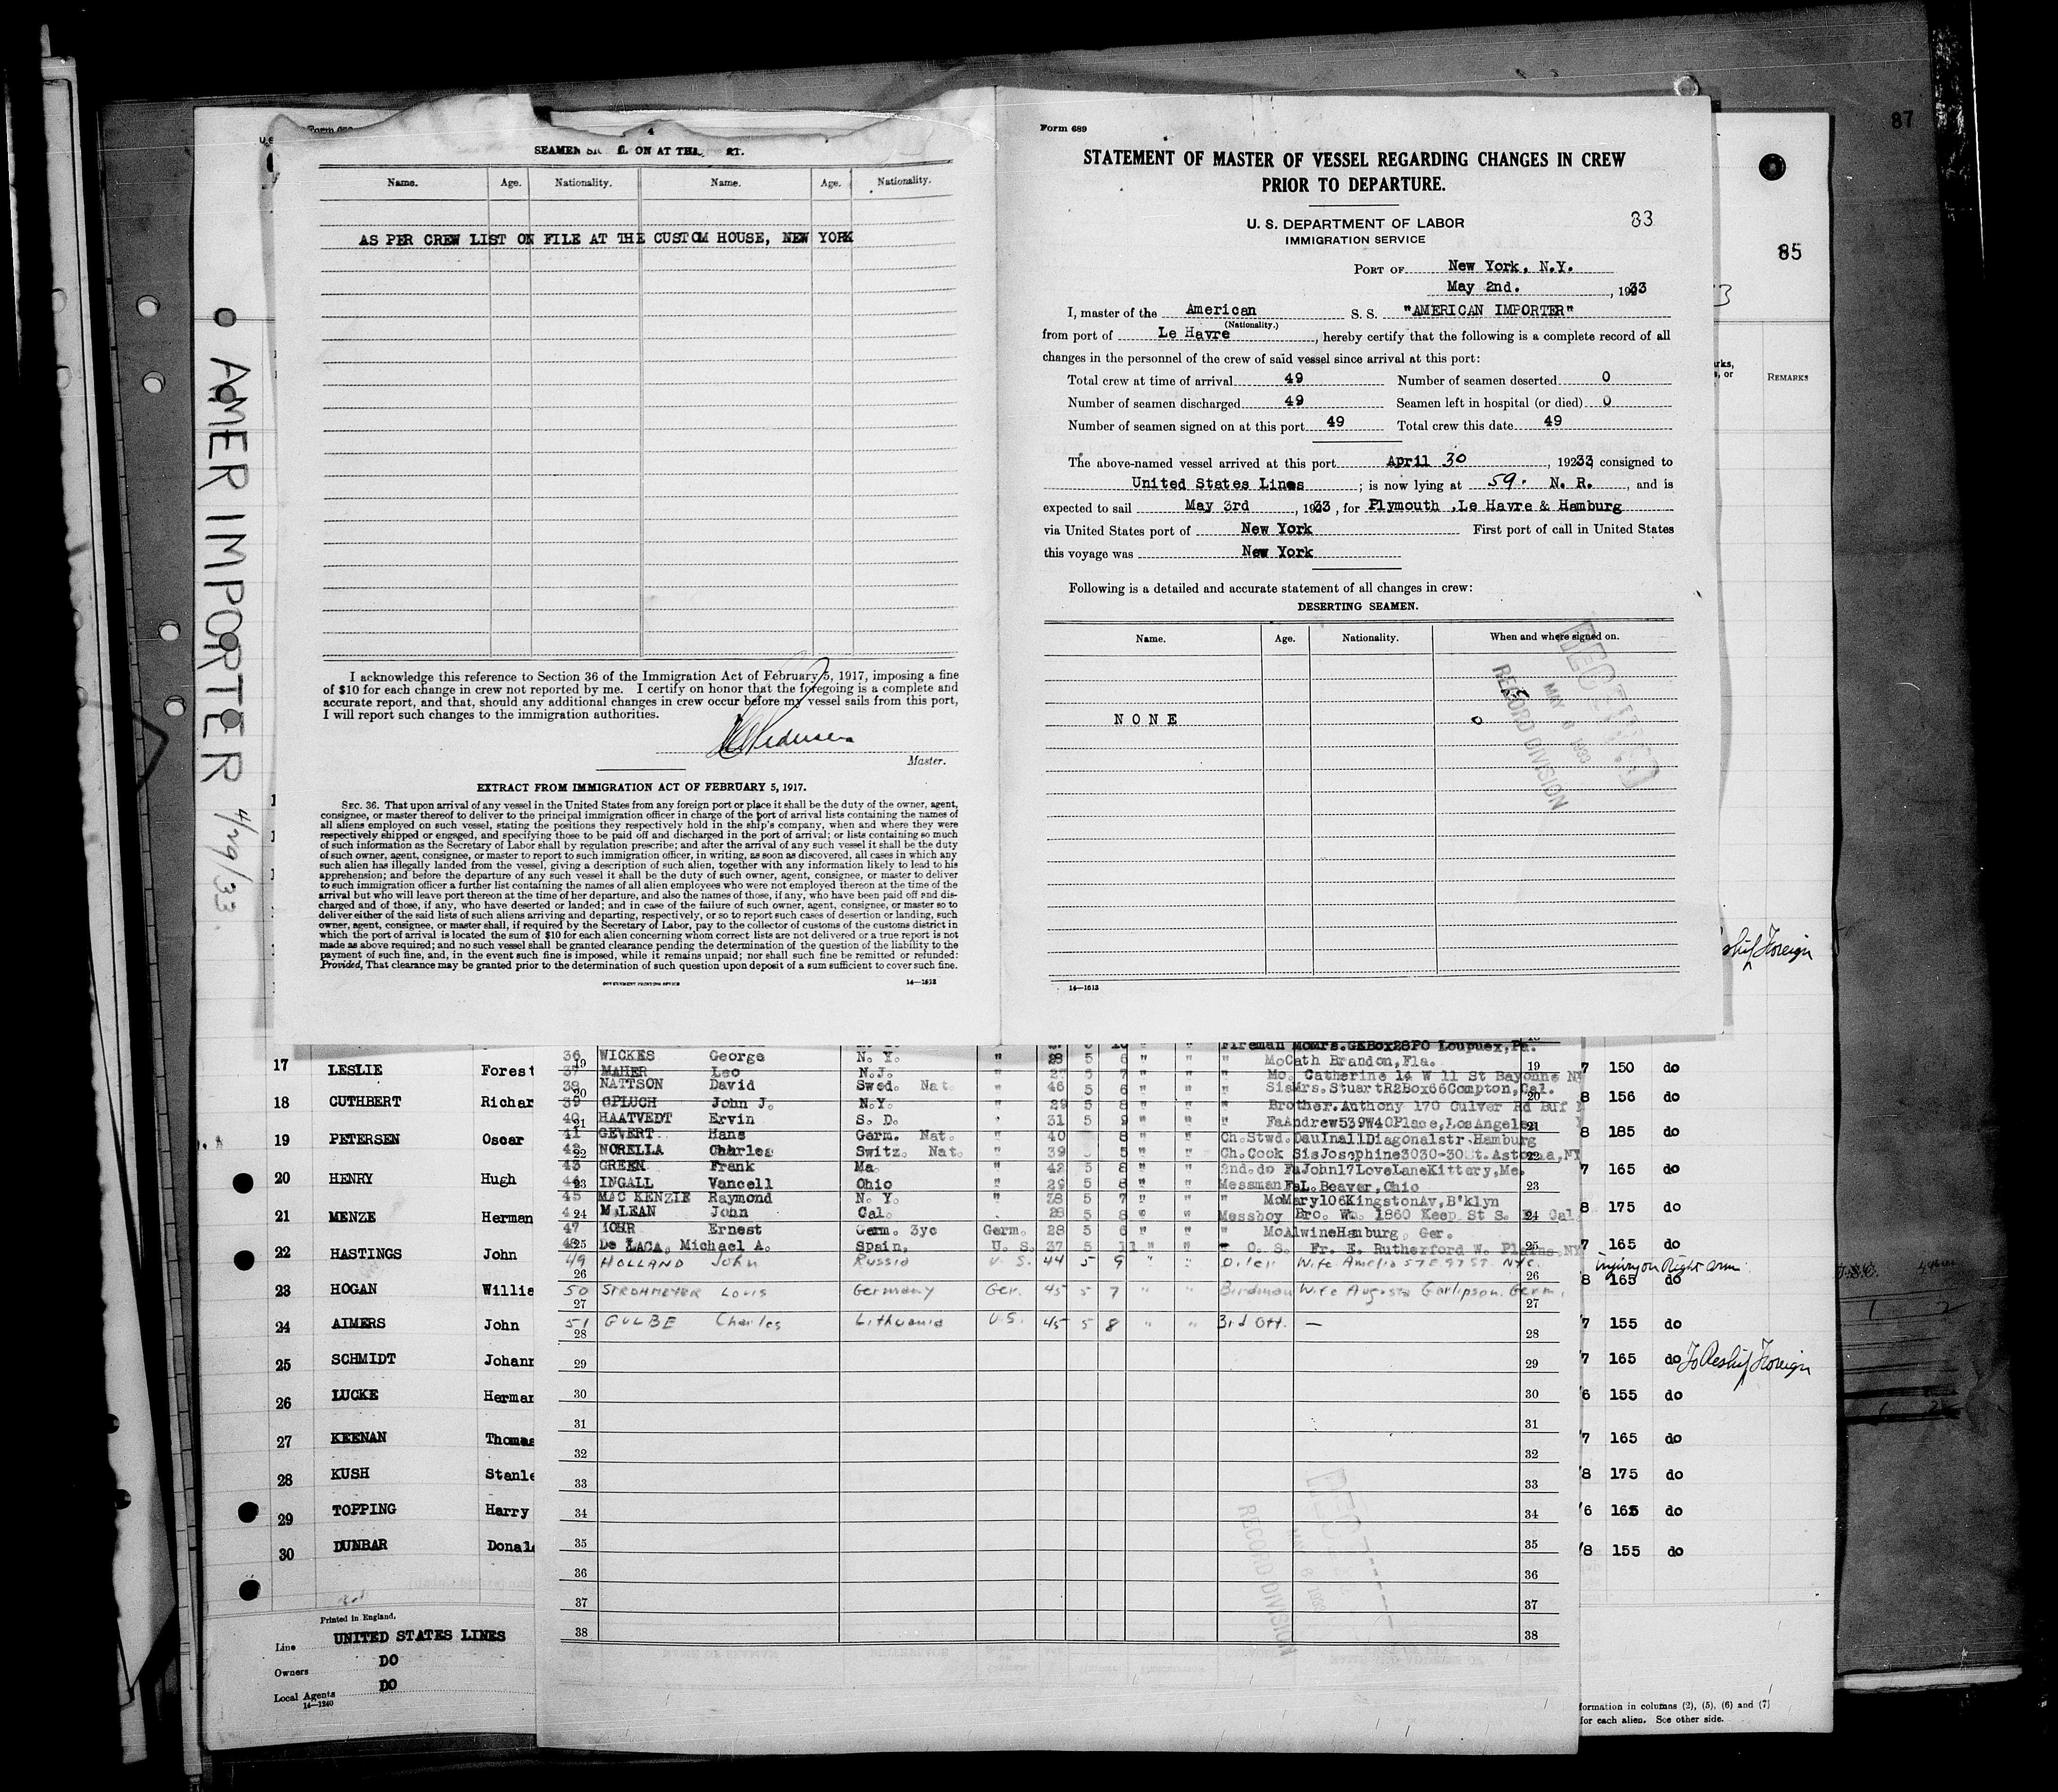 87
85
REMARKS
AMER IMPORTER 4/29/33
Form 689
4
SEAMEN ON AT
Name. Age. Nationality. Name. Age. Nationality.
AS PER CREW LIST ON FILE AT THE CUSTOM HOUSE, NEW YORK
I acknowledge this reference to Section 36 of the Immigration Act of February 5, 1917, imposing a fine
of $10 for each change in crew not reported by me. I certify on honor that the foregoing is a complete and
accurate report, and that, should any additional changes in crew occur before my vessel sails from this port,
I will report such changes to the immigration authorities.
Master.
EXTRACT FROM IMMIGRATION ACT OF FEBRUARY 5, 1917.
SEC. 36. That upon arrival of any vessel in the United States from any foreign port or place it shall be the duty of the owner, agent,
consignee, or master thereof to deliver to the principal immigration officer in charge of the port of arrival lists containing the names of
all aliens employed on such vessel, stating the positions they respectively hold in the ship's company, when and where they were
respectively shipped or engaged, and specifying those to be paid off and discharged in the port of arrival; or lists containing so much
of such information as the Secretary of Labor shall by regulation prescribe; and after the arrival of any such vessel it shall be the duty
of such owner, agent, consignee, or master to report to such immigration officer, in writing, as soon as discovered, all cases in which any
such alien has illegally landed from the vessel, giving a description of such alien, together with any information likely to lead to his
apprehension; and before the departure of any such vessel it shall be the duty of such owner, agent, consignee, or master to deliver
to such immigration officer a further list containing the names of all alien employees who were not employed thereon at the time of the
arrival but who will leave port thereon at the time of her departure, and also the names of those, if any, who have been paid off and dis-
charged and of those, if any, who have deserted or landed; and in case of the failure of such owner, agent, consignee, or master so to
deliver either of the said lists of such aliens arriving and departing, respectively, or so to report such cases of desertion or landing, such
owner, agent, consignee, or master shall, if required by the Secretary of Labor, pay to the collector of customs of the customs district in
which the port of arrival is located the sum of $10 for each alien concerning whom correct lists are not delivered or a true report is not
made as above required; and no such vessel shall be granted clearance pending the determination of the question of the liability to the
payment of such fine, and, in the event such fine is imposed, while it remains unpaid; nor shall such fine be remitted or refunded:
Provided, That clearance may be granted prior to the determination of such question upon deposit of a sum sufficient to cover such fine.
GOVERNMENT PRINTING OFFICE 14—1613
Form 689
STATEMENT OF MASTER OF VESSEL REGARDING CHANGES IN CREW
PRIOR TO DEPARTURE.
U. S. DEPARTMENT OF LABOR
IMMIGRATION SERVICE
83
PORT OF New York, N.Y.
May 2nd. , 1933
I, master of the American S. S. "AMERICAN IMPORTER"
(Nationality.)
from port of Le Havre , hereby certify that the following is a complete record of all
changes in the personnel of the crew of said vessel since arrival at this port:
Total crew at time of arrival 49 Number of seamen deserted 0
Number of seamen discharged 49 Seamen left in hospital (or died) 0
Number of seamen signed on at this port 49 Total crew this date 49
The above-named vessel arrived at this port April 30 , 1933, consigned to
United States Lines ; is now lying at 59. N. R. , and is
expected to sail May 3rd , 1933 , for Plymouth ,Le Havre & Hamburg
via United States port of New York First port of call in United States
this voyage was New York
Following is a detailed and accurate statement of all changes in crew:
DESERTING SEAMEN.
Name. Age. Nationality. When and where signed on.
NONE
RECEIVED
MAY 1933
RECORD DIVISION
14—1613
17 LESLIE Forest
18 CUTHBERT Richar
19 PETERSEN Oscar
20 HENRY Hugh
21 MENZE Herman
22 HASTINGS John
23 HOGAN Willia
24 AIMERS John
25 SCHMIDT Johann
26 LUCKE Herman
27 KEENAN Thomas
28 KUSH Stanle
29 TOPPING Harry
30 DUNBAR Donald
Printed in England.
Line UNITED STATES LINES
Owners DO
Local Agents DO
14—1240
36 WICKES George N. Y. " 28 5 6 " " " McCath Brandon,Fla.
37 MAHER Leo N.J. " 27 5 7 " " " Mo. Catherine 14 W 11 St Bayonne NJ
38 NATTSON David Swed. Nat. " 46 5 6 " " " SisMrs.StuartR2Box66Compton,Cal.
39 John J. N.Y. " 29 5 8 " " " Brother.Anthony 170 Culver Rd Buf
40 HAATVEDT Ervin S. D. " 31 5 9 " " " FaAndrew539W40Place,LosAngeles
41 GEVERT Hans Germ. Nat. " 40 8 " " Ch.Stwd. Hamburg
42 NORELLA Charles Switz. Nat. " 39 5 " " Ch.Cook SisJosephine3030-30St.Astoria,NY
43 GREEN Frank Ma. " 42 5 8 " " 2nd.do FaJohn17LoveLaneKittery,Me.
44 INGALL Vancell Ohio " 29 5 8 " " Messman FaL.Beaver,Ohio
45 MAC KENZIE Raymond N. Y. " 38 5 7 " " " MoMary106KingstonAv,B'klyn
McLEAN John Cal. " 28 5 8 " " Messboy Bro. Wm. 1860 Keep St S. Cal.
47 IOHR Ernest Germ. 3yc Germ. 28 5 6 " " " MoAlwineHamburg, Ger.
48 De LACA, Michael A. Spain, U. S. 37 5 11 " " " O. S. Fr. E. Rutherford W. Plains,NY
49 HOLLAND John Russia U. S. 44 5 9 " " Oiler Wife Amelia 57 E 97 ST. NYC.
50 STROHMEYER Louis Germany Ger. 45 5 7 " " Birdman Wife Augusta Garlipson. Germ.
51 GULBE Charles Lithuania U.S. 45 5 8 " " 3rd Off. —
19
20
21
22
23
24
25
26
27
28
29
30
31
32
33
34
35
36
37
38
RECORD DIVISION
7 150 do
8 156 do
8 185 do
7 165 do
8 175 do
7 165 do
injury on Right arm
8 165 do
7 155 do
7 165 do To Reship Foreign
6 155 do
7 165 do
8 175 do
6 165 do
8 155 do
Foreign
formation in columns (2), (5), (6) and (7)
for each alien. See other side.